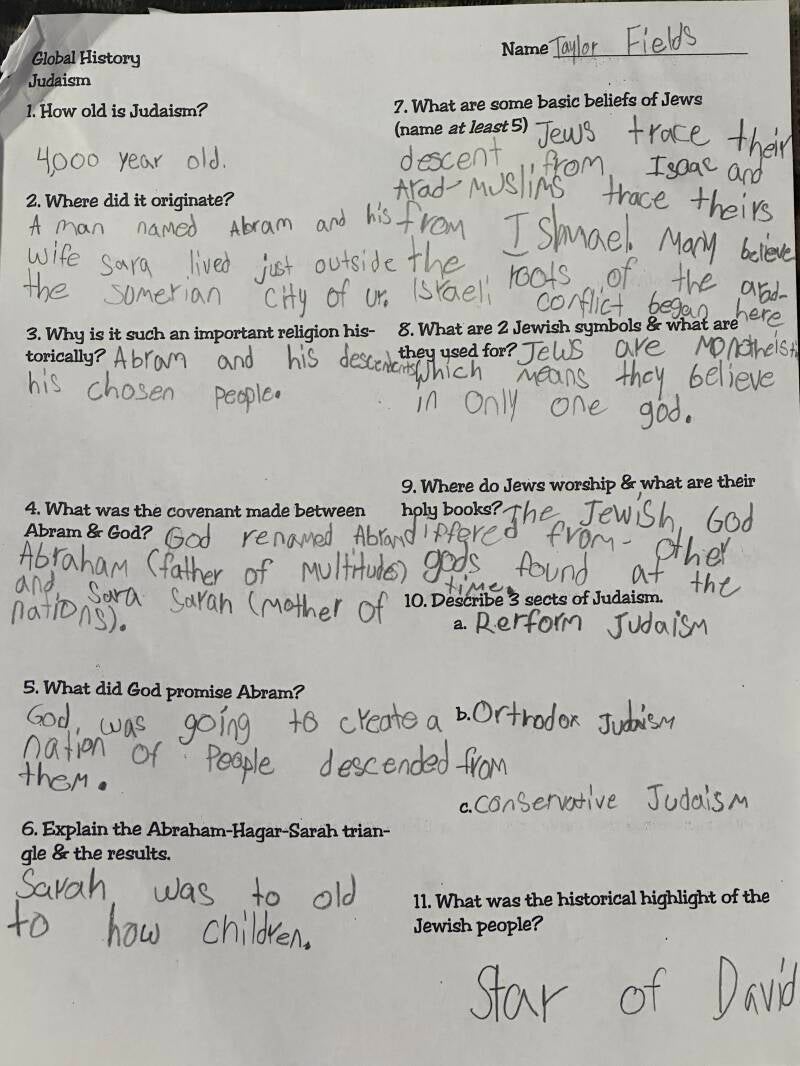 Global History
Judaism
Name Taylor Fields
1. How old is Judaism?
4,000 year old.
2. Where did it originate?
A man named Abram and his
wife Sara lived just outside
the Somerian City of Ur.
3. Why is it such an important religion his-
torically? Abram and his descendents,
his chosen people.
4. What was the covenant made between
Abram & God? God renamed Abram
Abraham (father of multitudes)
and Sara Sarah (mother of
nations).
5. What did God promise Abram?
God was going to create a
nation of People descended from
them.
6. Explain the Abraham-Hagar-Sarah trian-
gle & the results.
Sarah was to old
to how children.
7. What are some basic beliefs of Jews
(name at least 5) Jews trace their
descent from Isaac and
Arad-Muslims trace theirs
from Ishmael. Many believe
the roots of the arad-
Israeli conflict began here
8. What are 2 Jewish symbols & what are
they used for? Jews are Monotheist
which means they believe
in only one god.
9. Where do Jews worship & what are their
holy books? The Jewish God
differed from other
gods found at the
time.
10. Describe 3 sects of Judaism.
a. Rerform Judaism
b. Orthodox Judaism
c. Conservative Judaism
11. What was the historical highlight of the
Jewish people?
Star of David